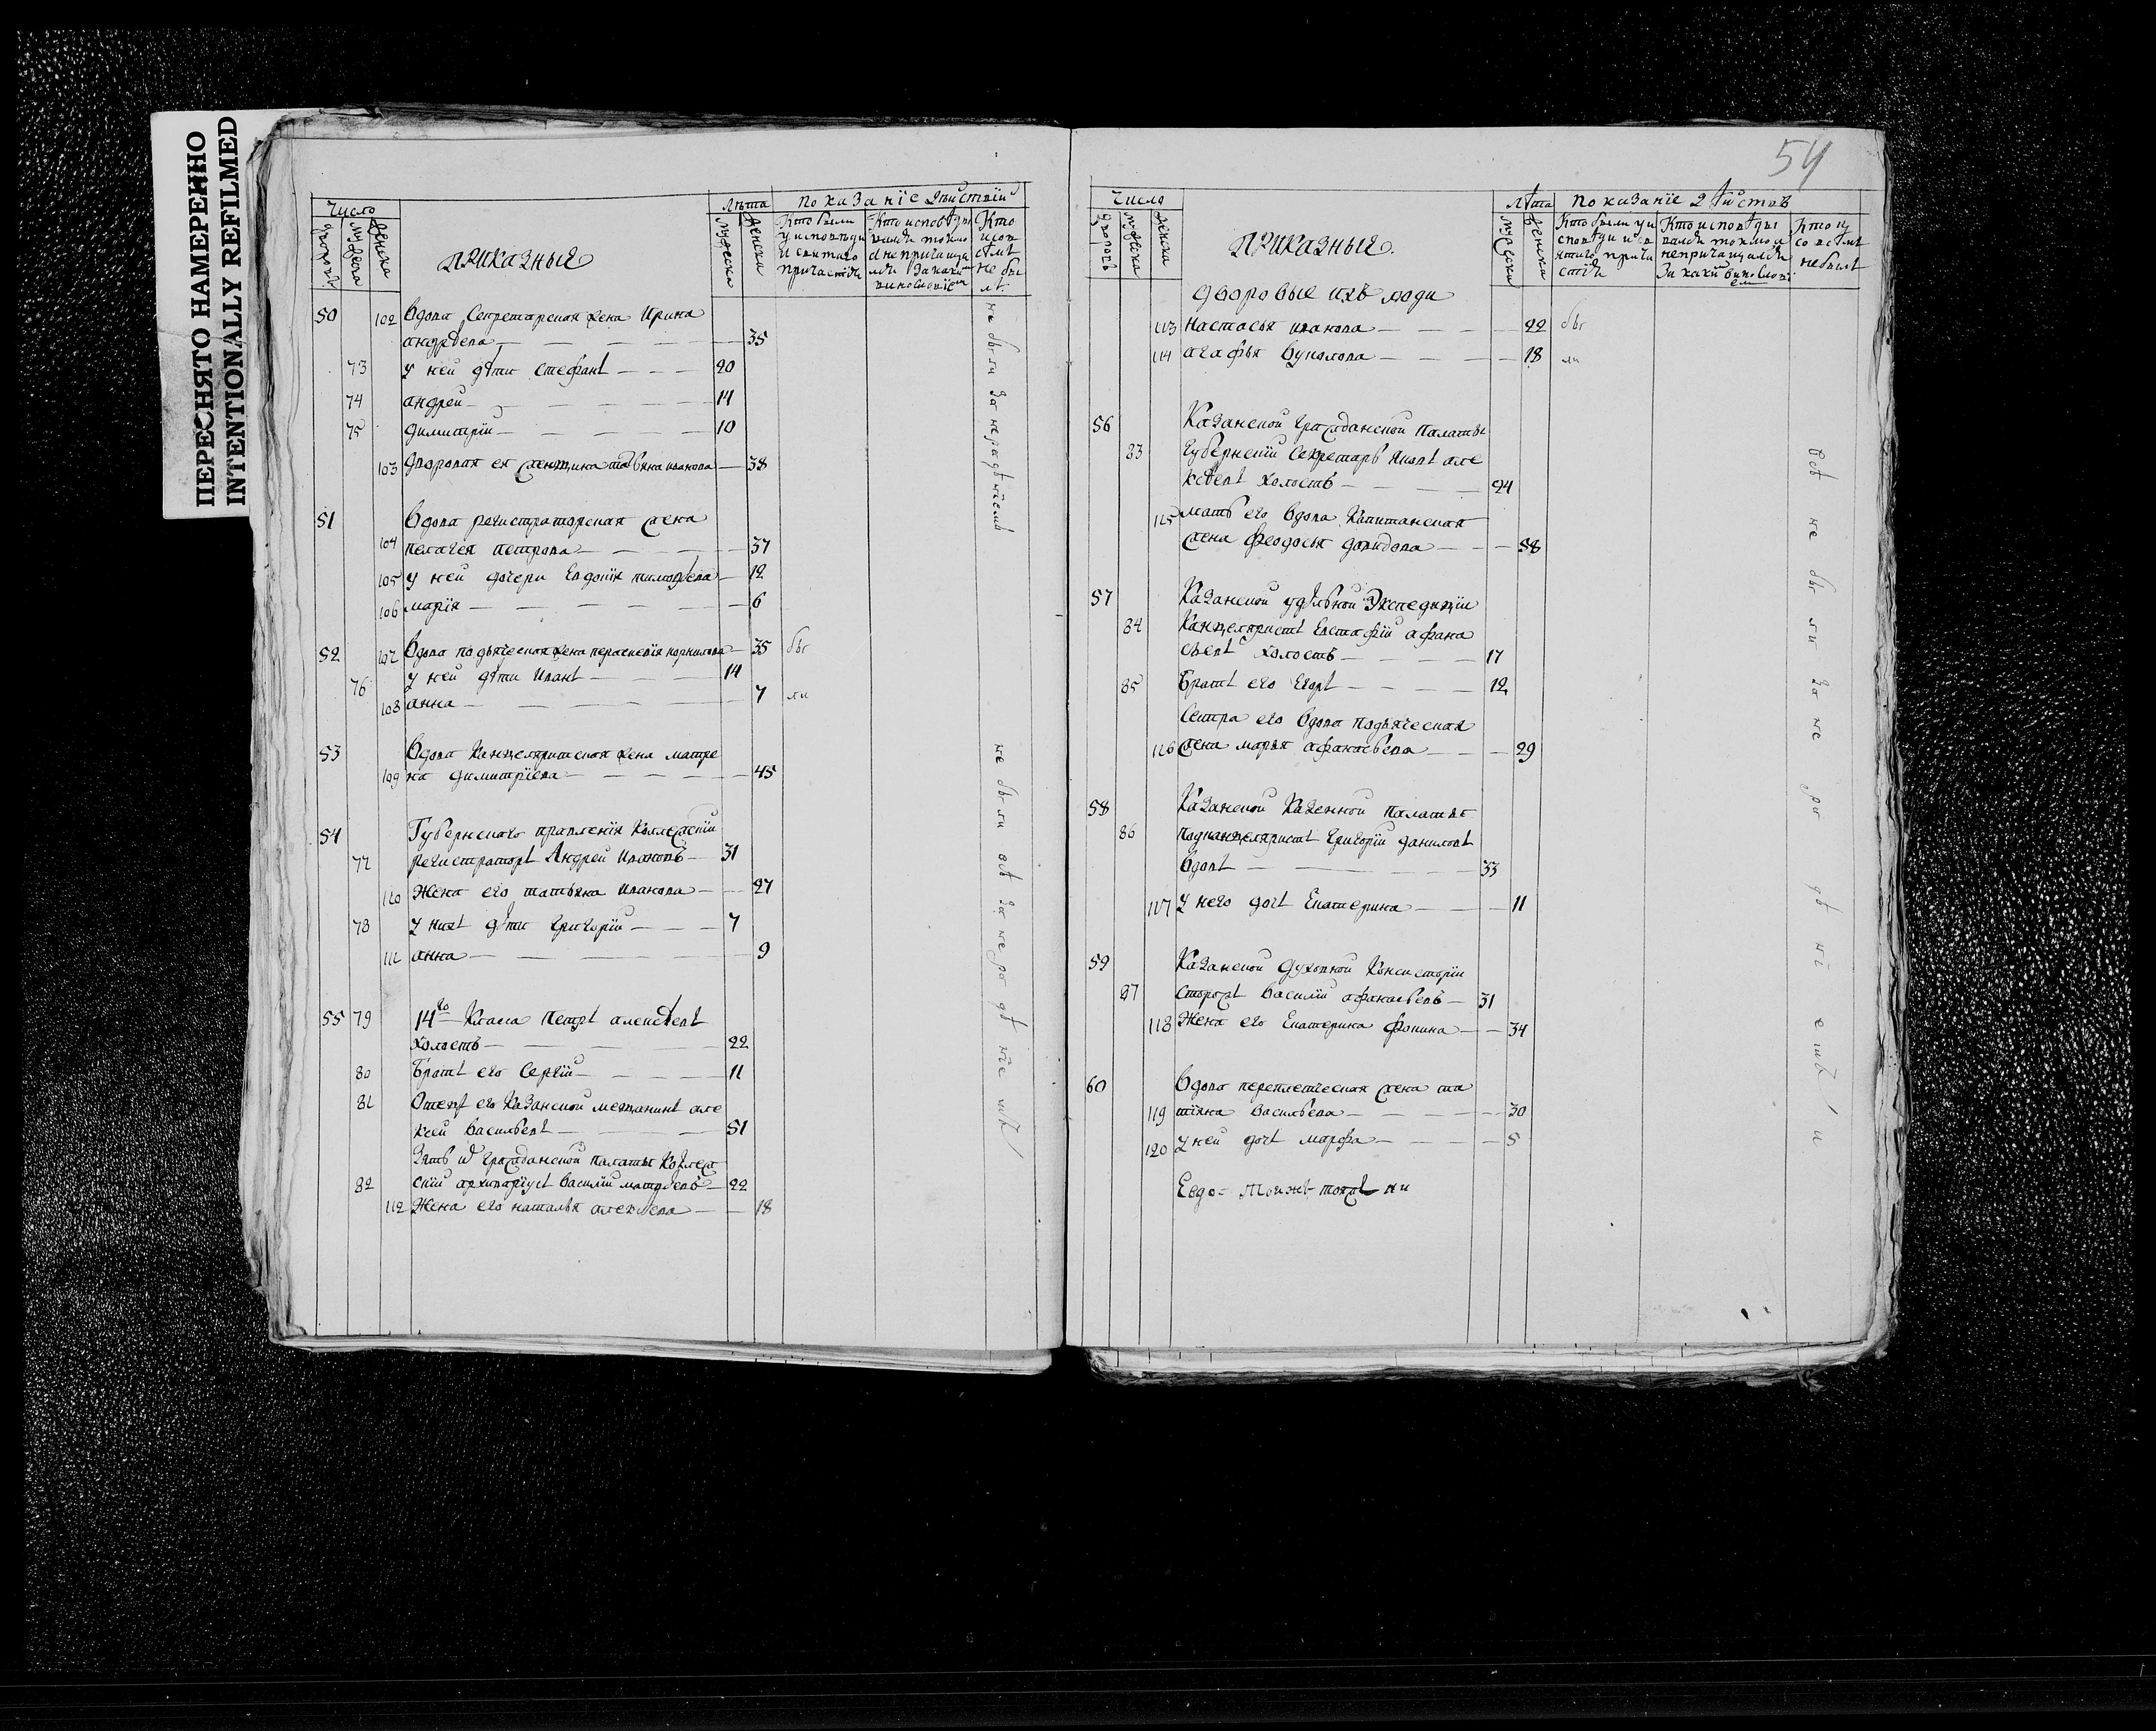 ПЕРЕСНЯТО НАМЕРЕННО
INTENTIONALLY REFILMED
Число
Лѣта
показаніе дѣйствій
дворовъ
мужеска
женска
ПРИКАЗНЫЕ
мужеска
женска
Кто были
у исповѣди
и святаго
причастія
Кто исповѣды
вался токмо
а не прича ща
лся за каки
Кто
испов
не бы
50 102 Вдова Секретарская жена Ирина
андреева 35
73 у ней дѣти стефанъ 20
74 андрей 14
75 димитрій 10
103 дворовая ея женщина иванова 38
не были за нерадѣніемъ
51 Вдова регистраторская жена
104 пелагея петрова 37
105 у ней дочери Евдокія тимофѣева 12
106 марія 6
52 107 Вдова подьяческая жена парасковія корнилова 35 бы
76 у ней дѣти Иванъ 14
108 анна 7 ли
53 Вдова Канцеляристская жена матре
109 на димитріева 45
54 Губернскаго правленія Коллежскій
77 регистраторъ Андрей Ивановъ 31
110 Жена его татьяна Иванова 27
78 у нихъ дѣти григорій 7
111 анна 9
55 79 14го Класа петръ алексѣевъ
холостъ 22
80 Братъ его Сергій 11
81 Отецъ его Казанской мещанинъ але
ксей васильевъ 51
Зять гражданской палаты Коллеж
82 скій архиваріусъ василій матвѣевъ 22
112 Жена его наталья алексѣева 18
не были всѣ за нерадѣніемъ
54
Число
Лѣта
показаніе дѣйствъ
дворовъ
мужеска
женска
ПРИКАЗНЫЕ.
мужеска
женска
Кто были у и
споведи и св
ятаго прича
стія
Кто исповѣды
вался токмо а
непричащался
за каки винословi
ем
Кто и
совсѣмъ
небылъ
дворовые ихъ люди
113 настасья иванова 22 бы
114 агафья вуколова 18 ли
56 Казанской гражданской палаты
83 губернскій Секретарь Яковъ але
ксѣевъ холостъ 24
115 мать его вдова Капитанская
жена феодосья давидова 58
57 Казанской удѣльной Экспедиціи
84 Канцеляристъ Евстафій афана
сьевъ холостъ 17
85 Братъ его Егоръ 12
Сестра его вдова подьяческая
116 жена марья афанасьева 29
58 Казанской Казенной палаты
86 подканцеляристъ григорій даниловъ
вдовъ 33
117 у него дочь Екатерина 11
59 Казанской духовной Консисторіи
87 сторожъ василій афанасьевъ 31
118 Жена его Екатерина фомина 34
60 Вдова переплетческая жена та
119 тіяна васильева 30
120 у ней дочь марфа 5
всѣ не были за нерадѣніемъ